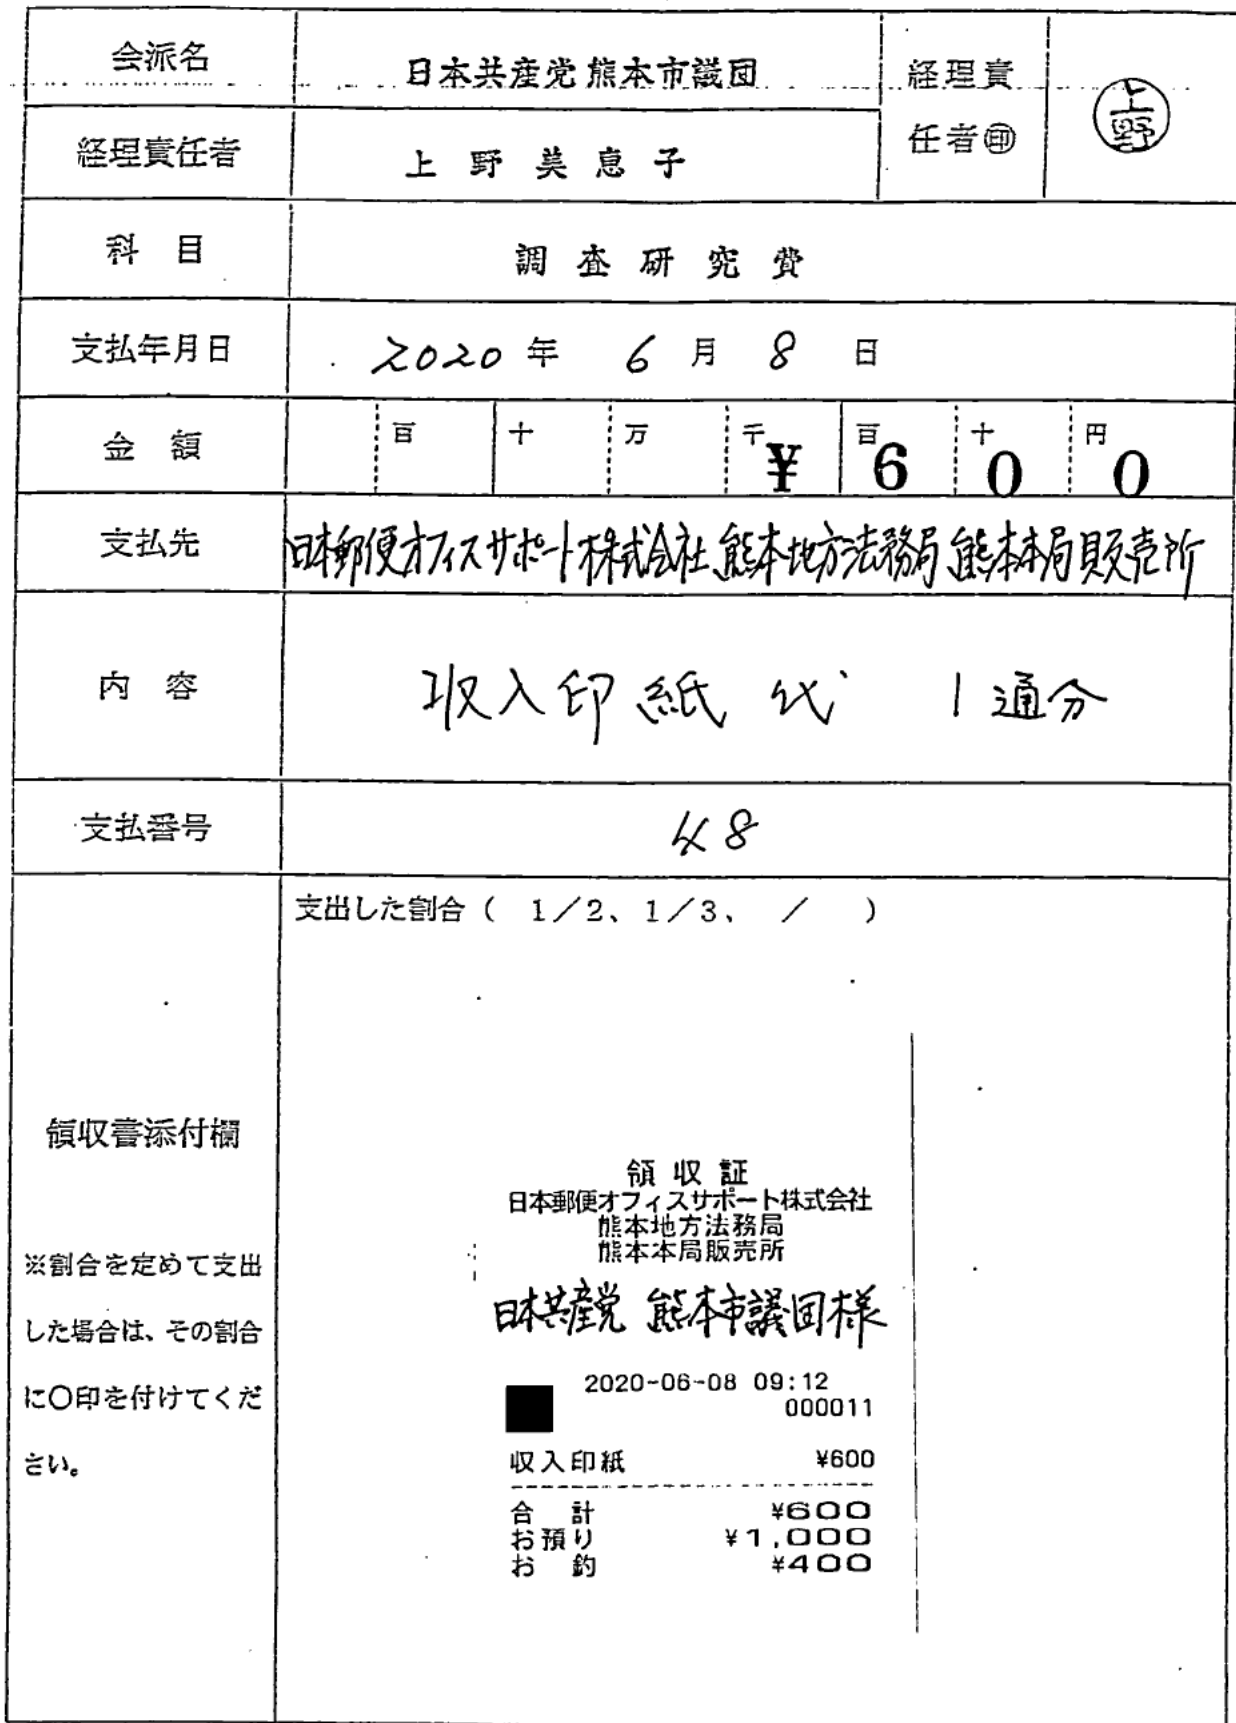 会派名 日本共産党熊本市議団 経理責任者㊞ 上野
経理責任者 上野美恵子
科目 調査研究費
支払年月日 2020年 6月 8日
金額 百 十 万 千 百 十 円 ¥600
支払先 日本郵便オフィスサポート株式会社 熊本地方法務局 熊本本局販売所
内容 収入印紙代 1通分
支払番号 48
支出した割合( 1/2、1/3、 / )
領収書添付欄
※割合を定めて支出
した場合は、その割合
に〇印を付けてくだ
さい。
領収証
日本郵便オフィスサポート株式会社
熊本地方法務局
熊本本局販売所
日本共産党 熊本市議団様
2020-06-08 09:12
000011
収入印紙 ¥600
合計 ¥600
お預り ¥1,000
お釣 ¥400